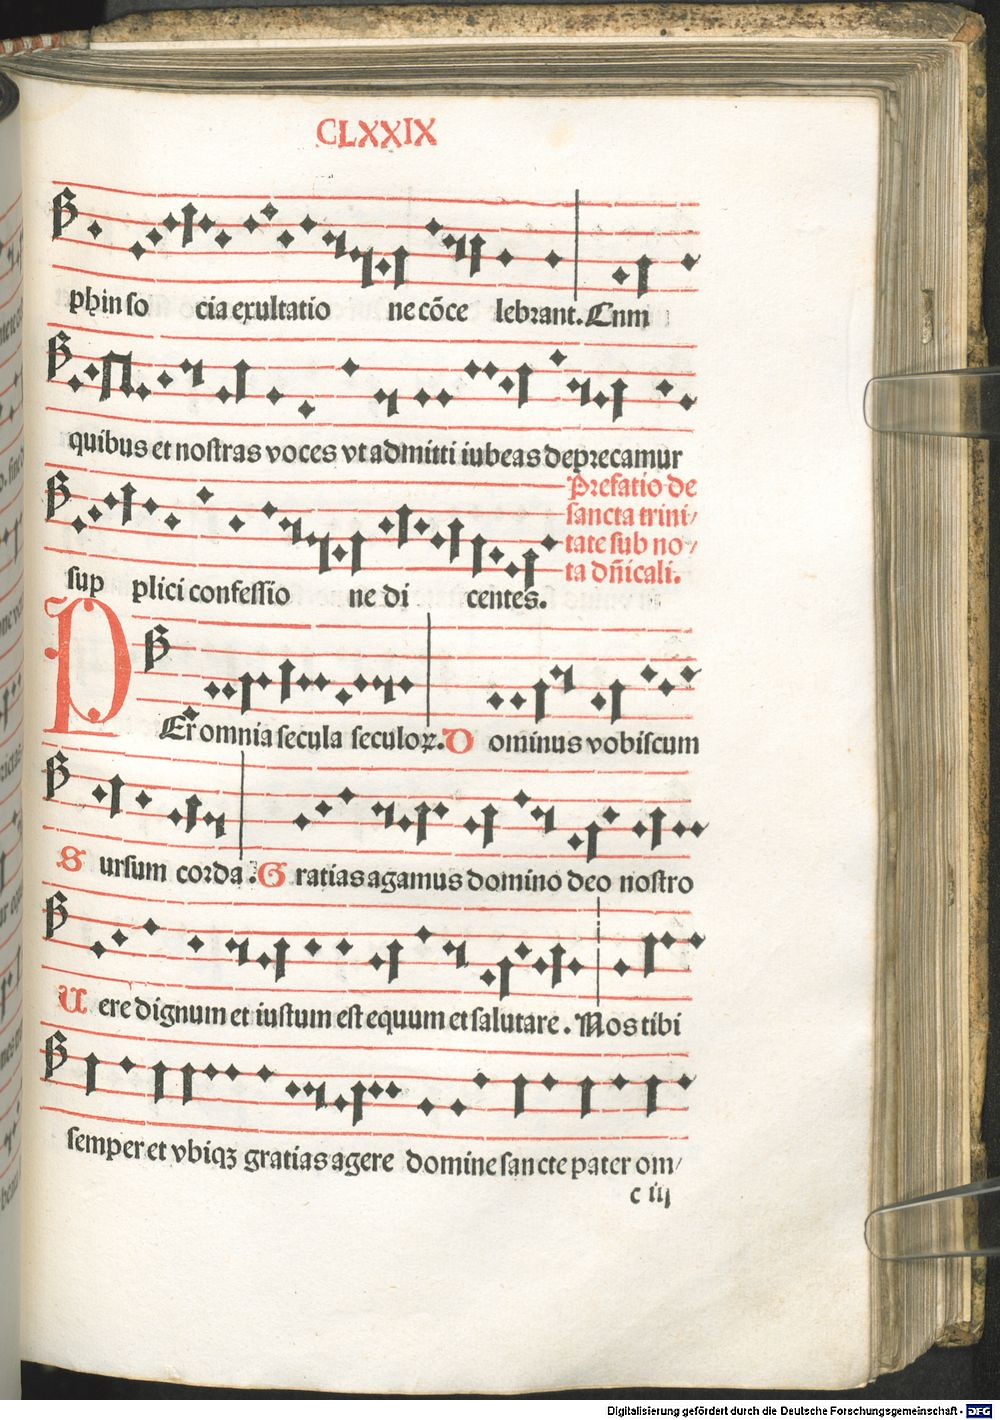 CLXXIX
phin so cia exultatio ne cōce lebrant. Cum
quibus et nostras voces vt admitti iubeas deprecamur
Prefatio de
sancta trini/
tate sub no/
ta dñicali.
sup plici confessio ne di centes.
PEr omnia secula seculoꝝ. Dominus vobiscum
Sursum corda. Gratias agamus domino deo nostro
Uere dignum et iustum est equum et salutare. Nos tibi
semper et vbiqꝫ gratias agere domine sancte pater om/
c iij
Digitalisierung gefördert durch die Deutsche Forschungsgemeinschaft - DFG